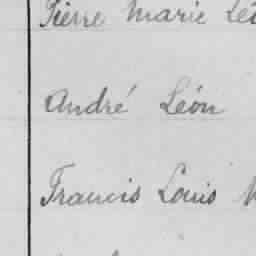 Pierre Marie Lé
André Léon
Francis Louis